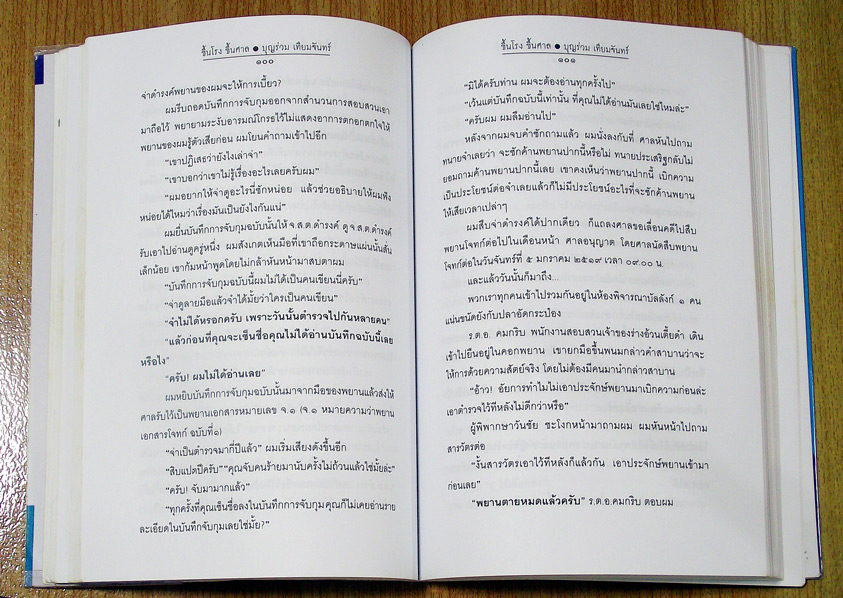 ขึ้นโรง ขึ้นศาล ● บุญร่วม เทียมจันทร์
๑๐๐
จ่าดำรงค์พยานของผมจะให้การเบี้ยว?
ผมรีบถอดบันทึกการจับกุมออกจากสำนวนการสอบสวนเอา
มาถือไว้ พยายามระงับอารมณ์โกรธไว้ไม่แสดงอาการตกอกตกใจให้
พยานของผมรู้ตัวเสียก่อน ผมโยนคำถามเข้าไปอีก
“เขาปฏิเสธว่ายังไงเล่าจ่า”
“เขาบอกว่าเขาไม่รู้เรื่องอะไรเลยครับผม”
“ผมอยากให้จ่าดูอะไรนี่ซักหน่อย แล้วช่วยอธิบายให้ผมฟัง
หน่อยได้ไหมว่าเรื่องมันเป็นยังไงกันแน่”
ผมยื่นบันทึกการจับกุมฉบับนั้นให้ จ.ส.ต.ดำรงค์ ดู จ.ส.ต.ดำรงค์
รับเอาไปอ่านดูครู่หนึ่ง ผมสังเกตเห็นมือที่เขาถือกระดาษแผ่นนั้นสั่น
เล็กน้อย เขาก้มหน้าพูดโดยไม่กล้าหันหน้ามาสบตาผม
“บันทึกการจับกุมฉบับนี้ผมไม่ได้เป็นคนเขียนนี่ครับ”
“จ่าดูลายมือแล้วจำได้มั้ยว่าใครเป็นคนเขียน”
“จำไม่ได้หรอกครับ เพราะวันนั้นตำรวจไปกันหลายคน”
“แล้วก่อนที่คุณจะเซ็นชื่อคุณไม่ได้อ่านบันทึกฉบับนี้เลย
หรือไง”
“ครับ! ผมไม่ได้อ่านเลย”
ผมหยิบบันทึกการจับกุมฉบับนั้นมาจากมือของพยานแล้วส่งให้
ศาลรับไว้เป็นพยานเอกสารหมายเลข จ.๑ (จ.๑ หมายความว่าพยาน
เอกสารโจทก์ ฉบับที่๑)
“จ่าเป็นตำรวจมากี่ปีแล้ว” ผมเริ่มเสียงดังขึ้นอีก
“สิบแปดปีครับ” “คุณจับคนร้ายมานับครั้งไม่ถ้วนแล้วใช่มั้ยล่ะ”
“ครับ! จับมามากแล้ว”
“ทุกครั้งที่คุณเซ็นชื่อลงในบันทึกการจับกุมคุณก็ไม่เคยอ่านราย
ละเอียดในบันทึกจับกุมเลยใช่มั้ย?”
ขึ้นโรง ขึ้นศาล ● บุญร่วม เทียมจันทร์
๑๐๑
“มิได้ครับท่าน ผมจะต้องอ่านทุกครั้งไป”
“เว้นแต่บันทึกฉบับนี้เท่านั้น ที่คุณไม่ได้อ่านมันเลยใช่ไหมล่ะ”
“ครับผม ผมลืมอ่านไป”
หลังจากผมจบคำซักถามแล้ว ผมนั่งลงกับที่ ศาลหันไปถาม
ทนายจำเลยว่า จะซักค้านพยานปากนี้หรือไม่ ทนายประเสริฐกลับไม่
ยอมถามค้านพยานปากนี้เลย เขาคงเห็นว่าพยานปากนี้ เบิกความ
เป็นประโยชน์ต่อจำเลยแล้วก็ไม่มีประโยชน์อะไรที่จะซักค้านพยาน
ให้เสียเวลาเปล่าๆ
ผมสืบจ่าดำรงค์ได้ปากเดียว ก็แถลงศาลขอเลื่อนคดีไปสืบ
พยานโจทก์ต่อไปในเดือนหน้า ศาลอนุญาต โดยศาลนัดสืบพยาน
โจทก์ต่อในวันจันทร์ที่ ๕ มกราคม ๒๕๑๙ เวลา ๐๙.๐๐ น.
และแล้ววันนั้นก็มาถึง...
พวกเราทุกคนเข้าไปรวมกันอยู่ในห้องพิจารณาบัลลังก์ ๑ คน
แน่นขนัดยังกับปลาอัดกระป๋อง
ร.ต.อ. คมกริบ พนักงานสอบสวนเจ้าของร่างอ้วนเตี้ยดำ เดิน
เข้าไปยืนอยู่ในคอกพยาน เขายกมือขึ้นพนมกล่าวคำสาบานว่าจะ
ให้การด้วยความสัตย์จริง โดยไม่ต้องมีคนมานำกล่าวสาบาน
“อ้าว! อัยการทำไมไม่เอาประจักษ์พยานมาเบิกความก่อนล่ะ
เอาตำรวจไว้ทีหลังไม่ดีกว่าหรือ”
ผู้พิพากษาวันชัย ชะโงกหน้ามาถามผม ผมหันหน้าไปถาม
สารวัตรต่อ
“งั้นสารวัตรเอาไว้ทีหลังก็แล้วกัน เอาประจักษ์พยานเข้ามา
ก่อนเลย”
“พยานตายหมดแล้วครับ” ร.ต.อ.คมกริบ ตอบผม